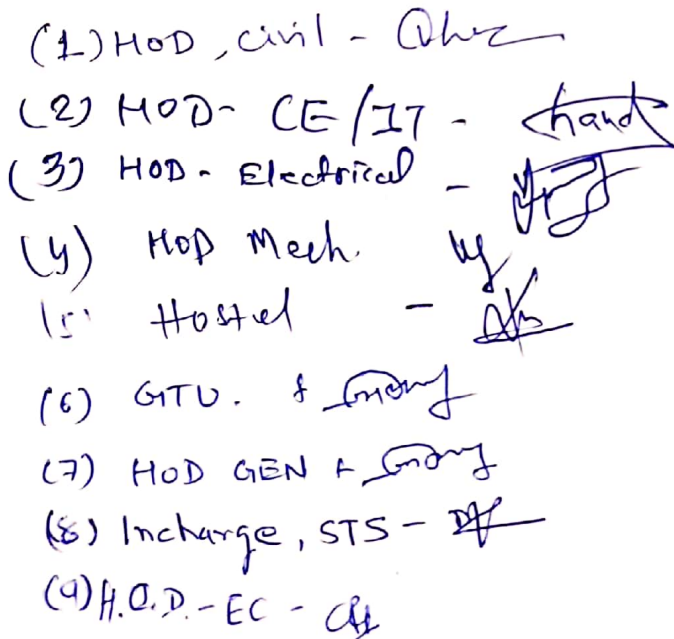 (1) HOD, civil -
(2) HOD- CE/IT - Chand
(3) HOD- Electrical -
(4) HOD Mech.
(5) Hostel -
(6) GTU.
(7) HOD GEN
(8) Incharge, STS -
(9) H.O.D. - EC -